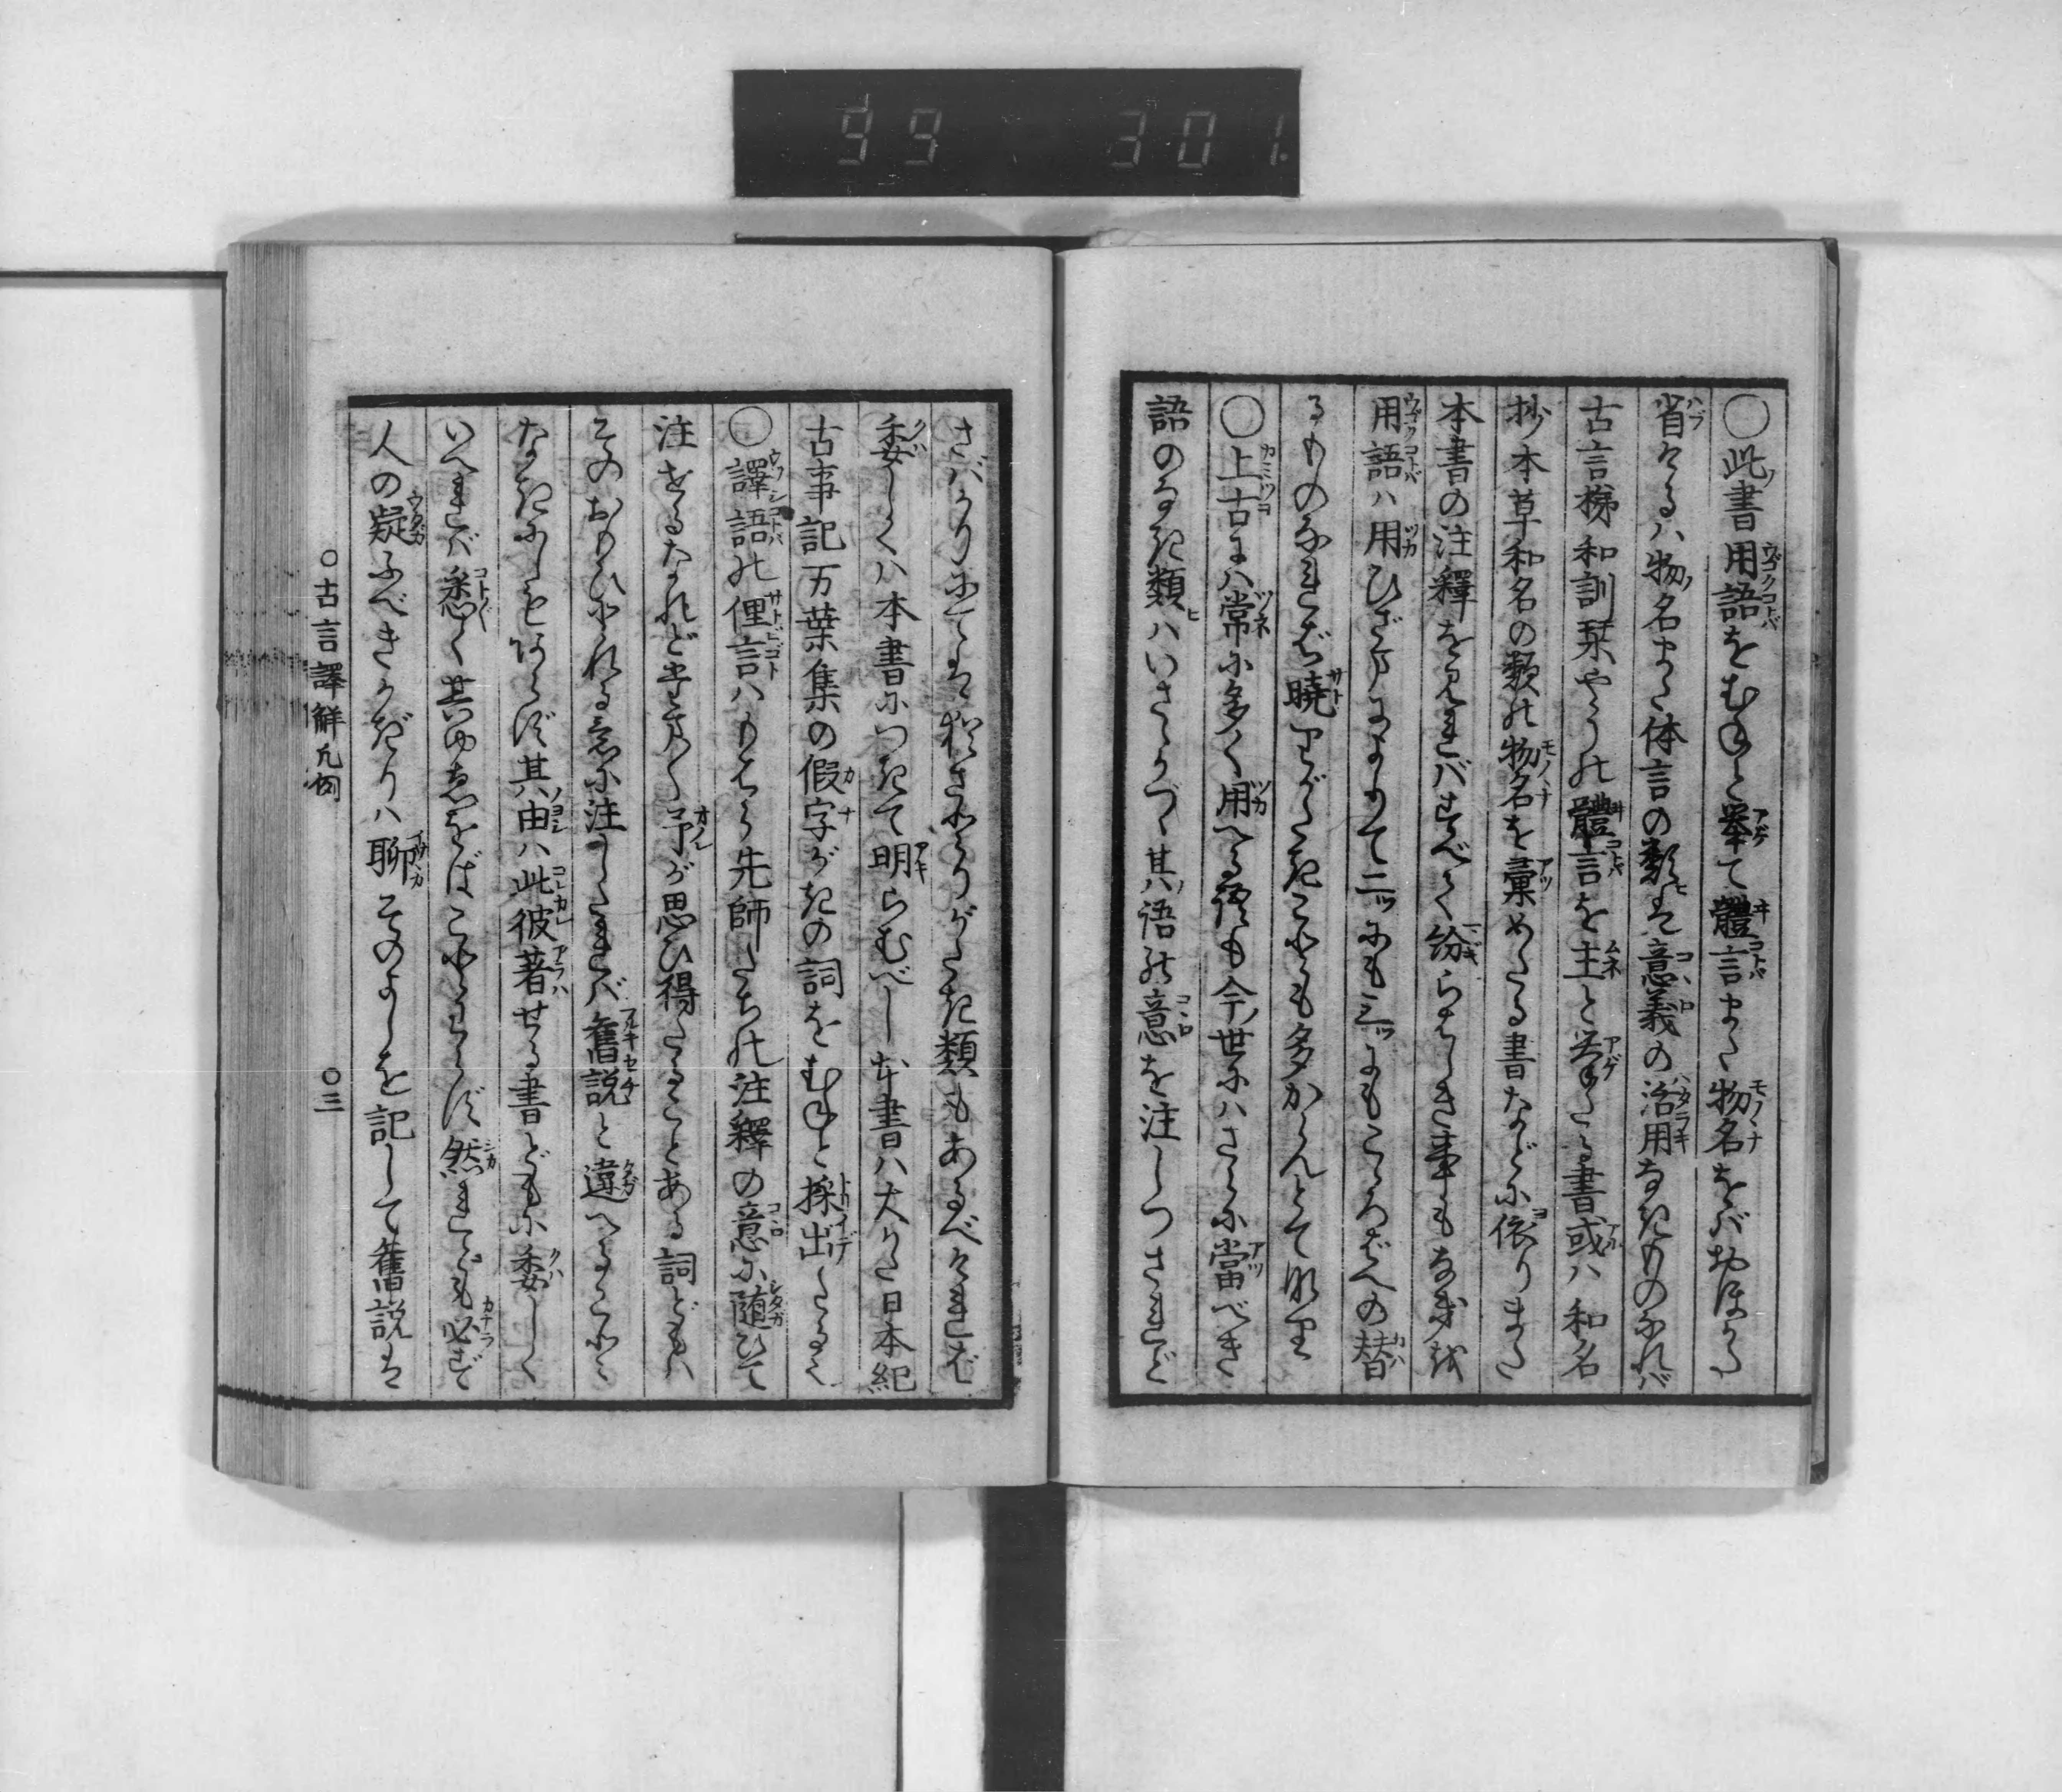 99 301.
○此書用語をむねと挙て體言また物名をバおほかた
省けるハ物名また体言の類は意義の活用なきものなれバ
古言梯和訓栞やうの體言を主と挙たる書或ハ和名
抄本草和名の類の物名を彙めたる書などに依りまた
本書の注釋を見れバすべて紛らはしき事もなきを
用語ハ用ひざまによりて二ツにも三ツにもこころばへの替
るものなれば暁りがたきことも多からんとて也
○上古には常に多く用へる語も今世にハさらに當べき
語のなき類ハいさゝかづゝ其語の意を注しつされど
さバかりにては猶さとりがたき類もあるべければ
委しくハ本書につきて明らむべし本書ハ大かた日本紀
古事記万葉集の假字がきの詞をむねと採出たる也
○譯語の俚言ハもはら先師たちの注釋の意に随ひて
注せるなれど希々予が思ひ得たることある詞どもハ
そのおもひとれる意に注したれバ舊説と違へることも
なきにしもあらず其由ハ此彼著せる書どもに委しく
いへれバ悉く其ゆゑをばことわらず然れども必ず
人の疑ふべきかぎりハ聊そのよしを記して舊説は
○古言譯解凡例
○三